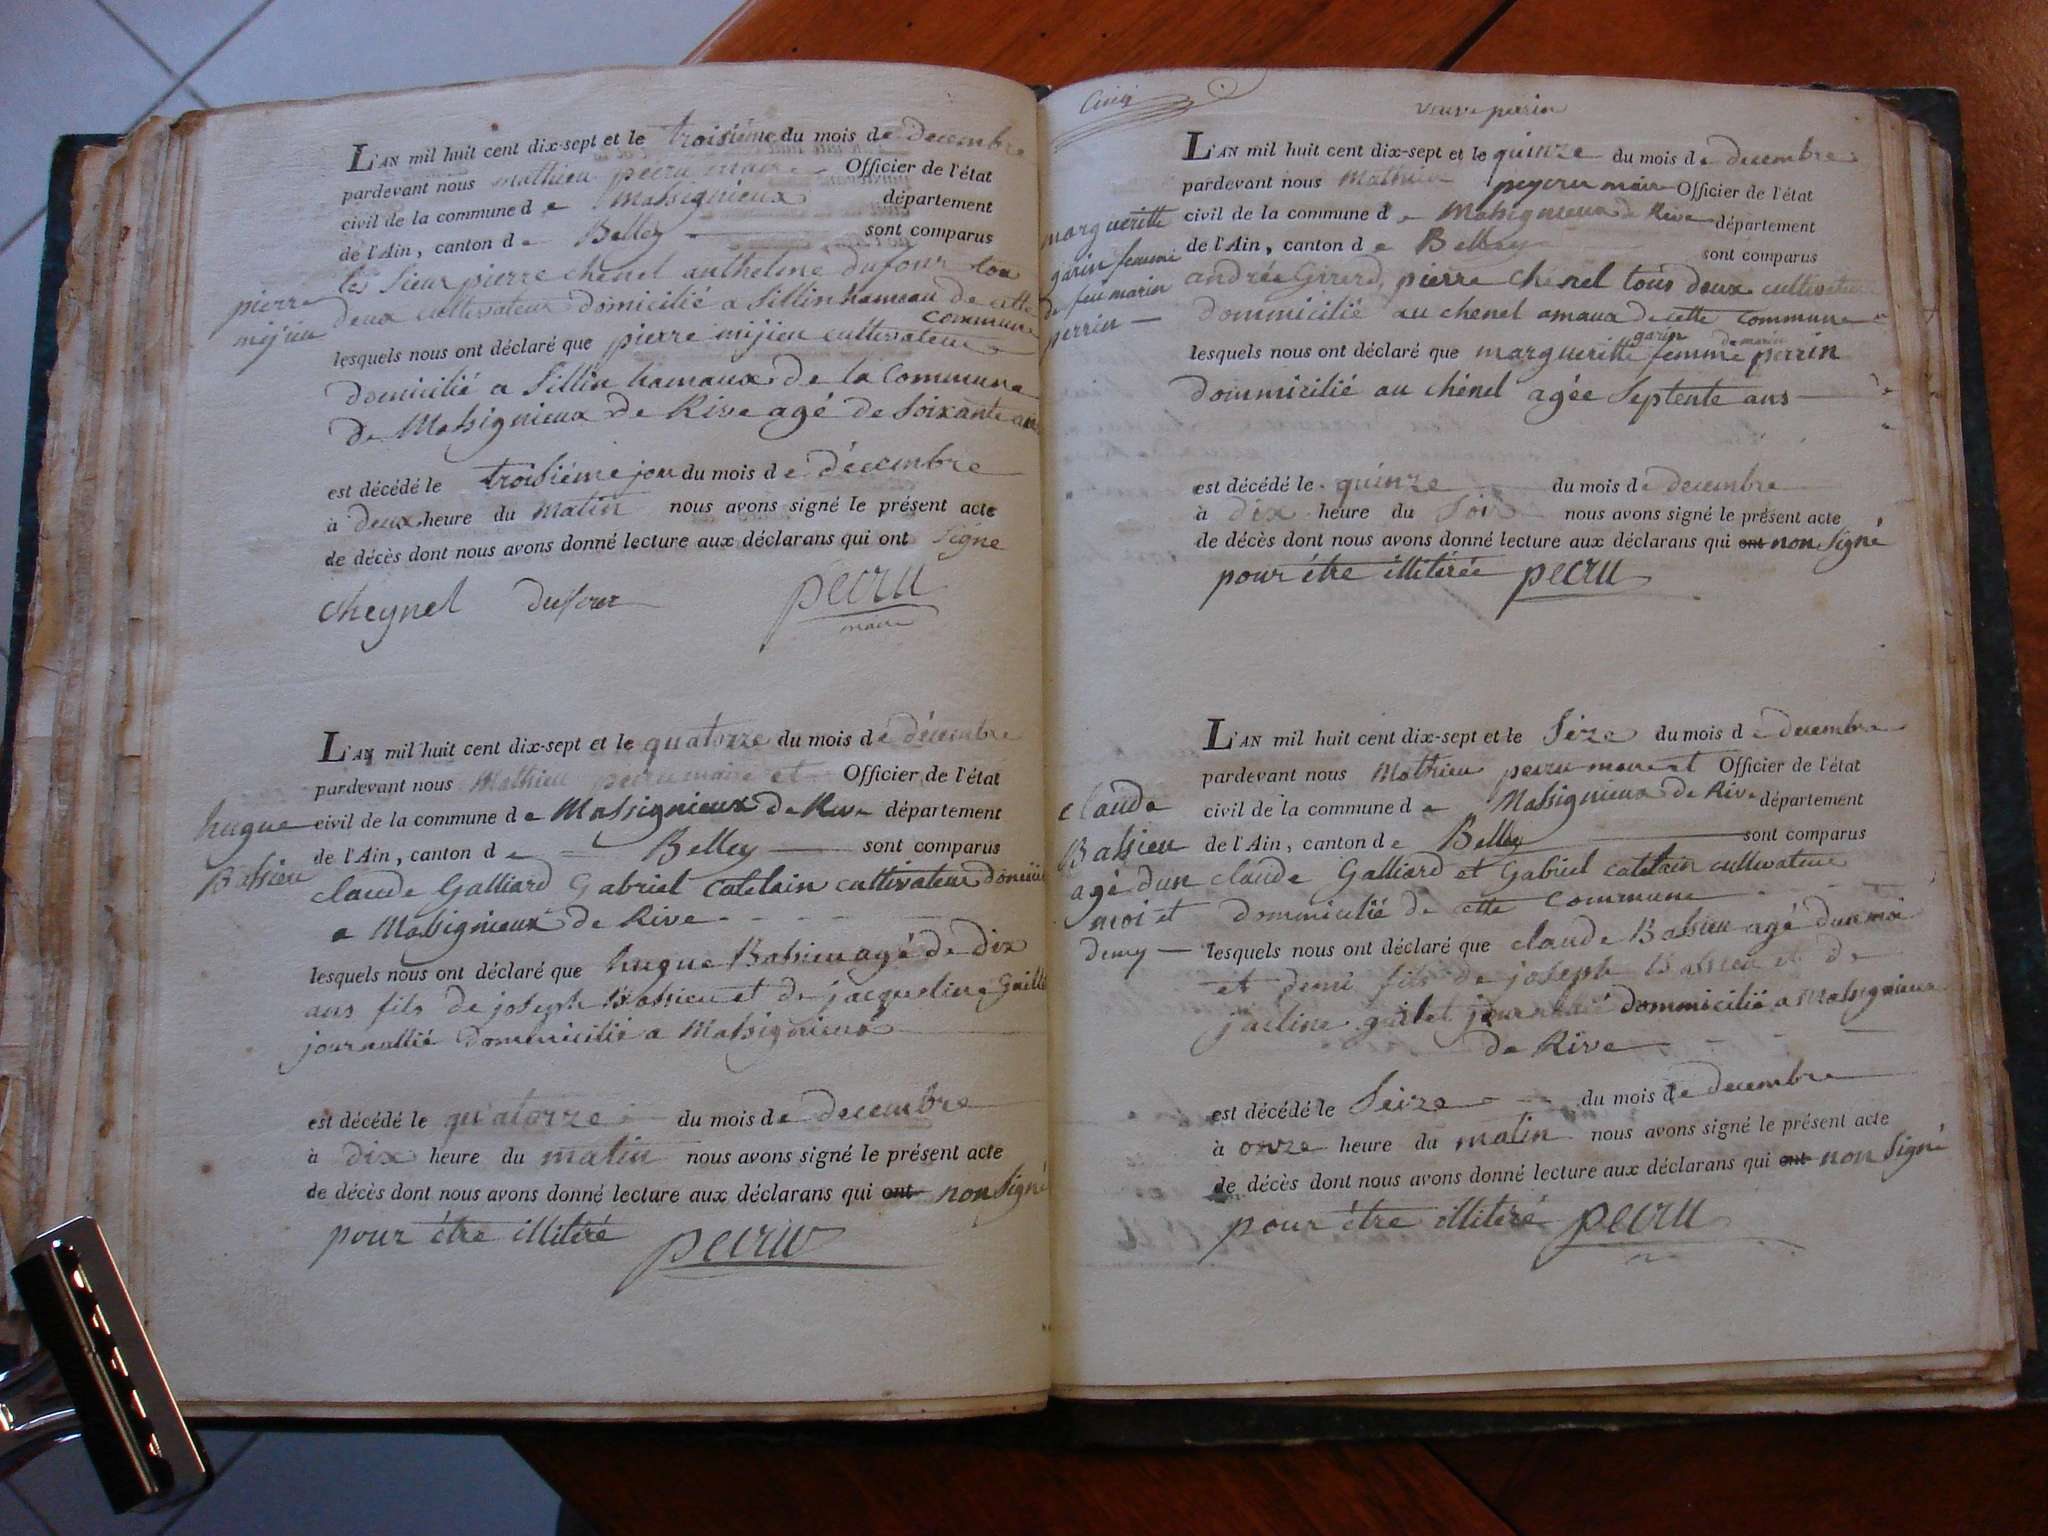 L'AN mil huit cent dix-sept et le troisiéme du mois de decembre
pardevant nous mathieu pecru maire Officier de l'état
civil de la commune de Massignieux département
de l'Ain, canton de Belley sont comparus
les Sieur pierre chenel anthelme dufour tou
pierre mijieu
deux cultivateur domicilié a Sillin hameau de cette
commune
lesquels nous ont déclaré que pierre mijieu cultivateur
domicilié a Sillin hamaux de la Commune
de Massignieux de Rive agé de soixante ans
est décédé le troisiéme jour du mois de décembre
à deux heure du matin nous avons signé le présent acte
de décès dont nous avons donné lecture aux déclarans qui ont signe
cheynel dufour pecru
maire
L'AN mil huit cent dix-sept et le quatorze du mois de décembre
pardevant nous Mathieu pecru maire et Officier de l'état
civil de la commune de Massignieux de Rive département
de l'Ain, canton de Belley sont comparus
hugue
Bassieu
claude Galliard Gabriel catelain cultivateur
a Massignieux de Rive
lesquels nous ont déclaré que hugue Bassieu agé de dix
ans fils de joseph Bassieu et de jacqueline
journallié dommicilié a Massignieux
est décédé le quatorze du mois de decembre
à dix heure du matin nous avons signé le présent acte
de décès dont nous avons donné lecture aux déclarans qui ont non signé
pour étre illitéré pecru
Cinq
veuve perrin
L'AN mil huit cent dix-sept et le quinze du mois de decembre
pardevant nous Mathieu peycru maire Officier de l'état
civil de la commune de Massignieux de Rive département
de l'Ain, canton de Belley sont comparus
margueritte
garin femme
de feu marin
perrin
andrée Girerd, pierre chenel tous deux cultivateur
dommicilié au chenel amaux de cette commune
garin de marin
lesquels nous ont déclaré que margueritte femme perrin
dommicilié au chénel agée septente ans
est décédé le quinze du mois de decembre
à dix heure du soir nous avons signé le présent acte
de décès dont nous avons donné lecture aux déclarans qui ont non signé
pour étre illitérée pecru
L'AN mil huit cent dix-sept et le seize du mois de decembre
pardevant nous Mathieu pecru maire et Officier de l'état
civil de la commune de Massignieux de Rive département
de l'Ain, canton de Belley sont comparus
claude
Bassieu
agé dun
moi et
demy
claude Galliard et Gabriel catelain cultivateur
dommicilié de cette commune
lesquels nous ont déclaré que claude Bassieu agé dun moi
et demi fils de joseph Bassieu et de
jacline gailet journalié dommicilié a Massignieux
de Rive
est décédé le Seize du mois de decembre
à onze heure du matin nous avons signé le présent acte
de décès dont nous avons donné lecture aux déclarans qui ont non signé
pour étre illitéré pecru